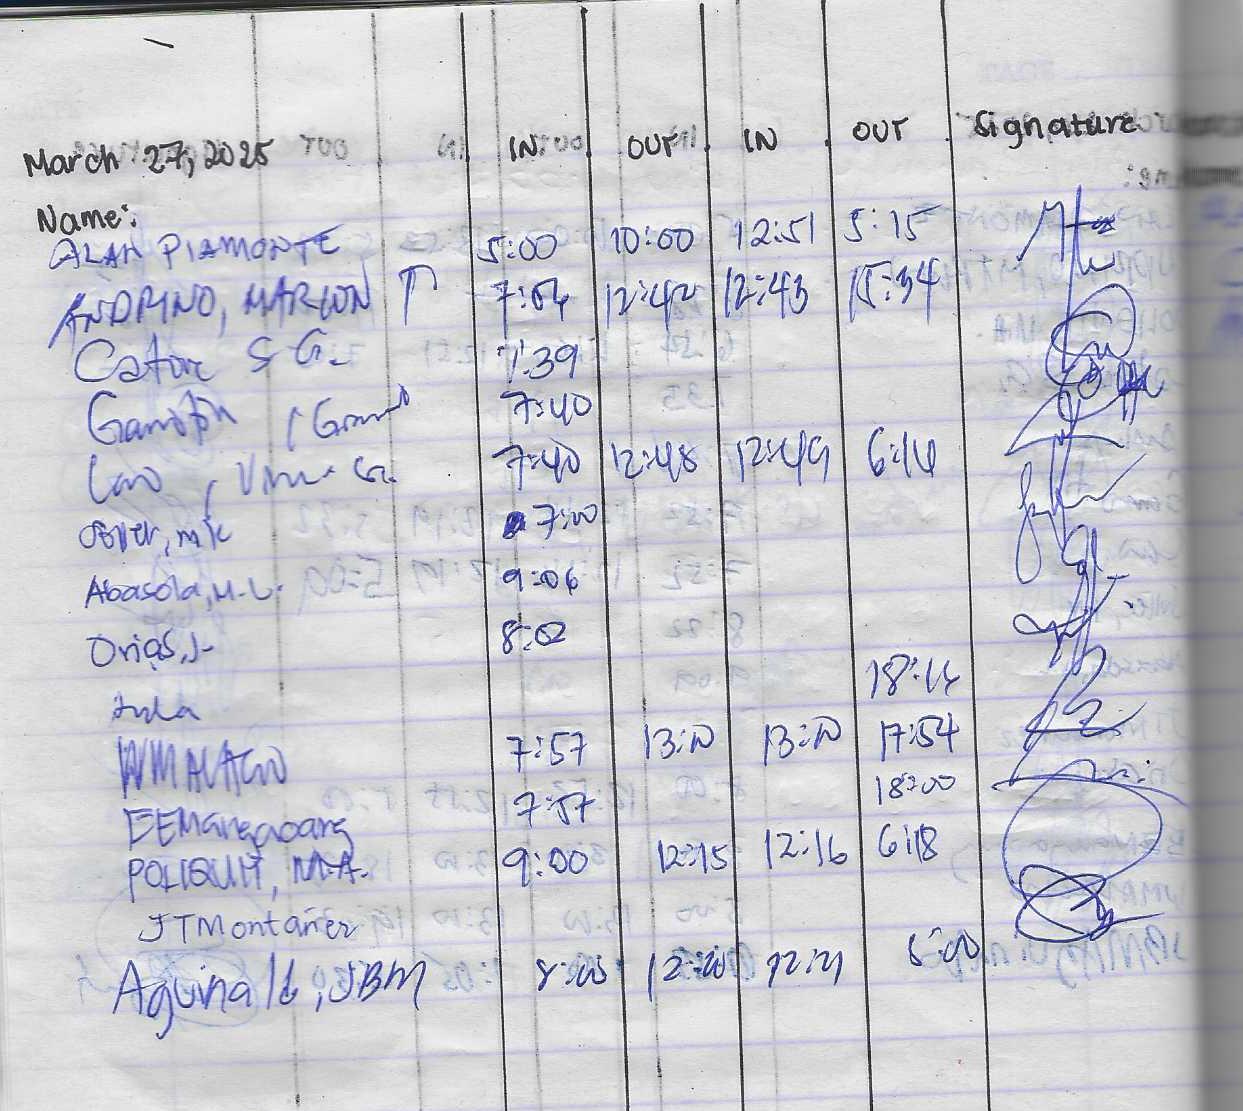 March 27, 2025 IN OUT IN OUT Signature
Name:
ALAN PIAMONTE 5:00 10:00 12:51 5:15
ANDRINO, MARLON T 7:54 12:42 12:43 15:34
Cator S G. 7:39
7:40
Lao, G. 7:40 12:48 12:49 6:14
7:00
Abasola, M.L. 9:06
Orias, J. 8:02
18:14
WMALACO 7:57 13:10 13:10 17:54
EEMangaoang 7:57 18:00
POLIQUIT, M.A. 9:00 12:15 12:16 6:18
JTMontañez
Aguinald, JBM 8:05 12:20 12:21 5:00